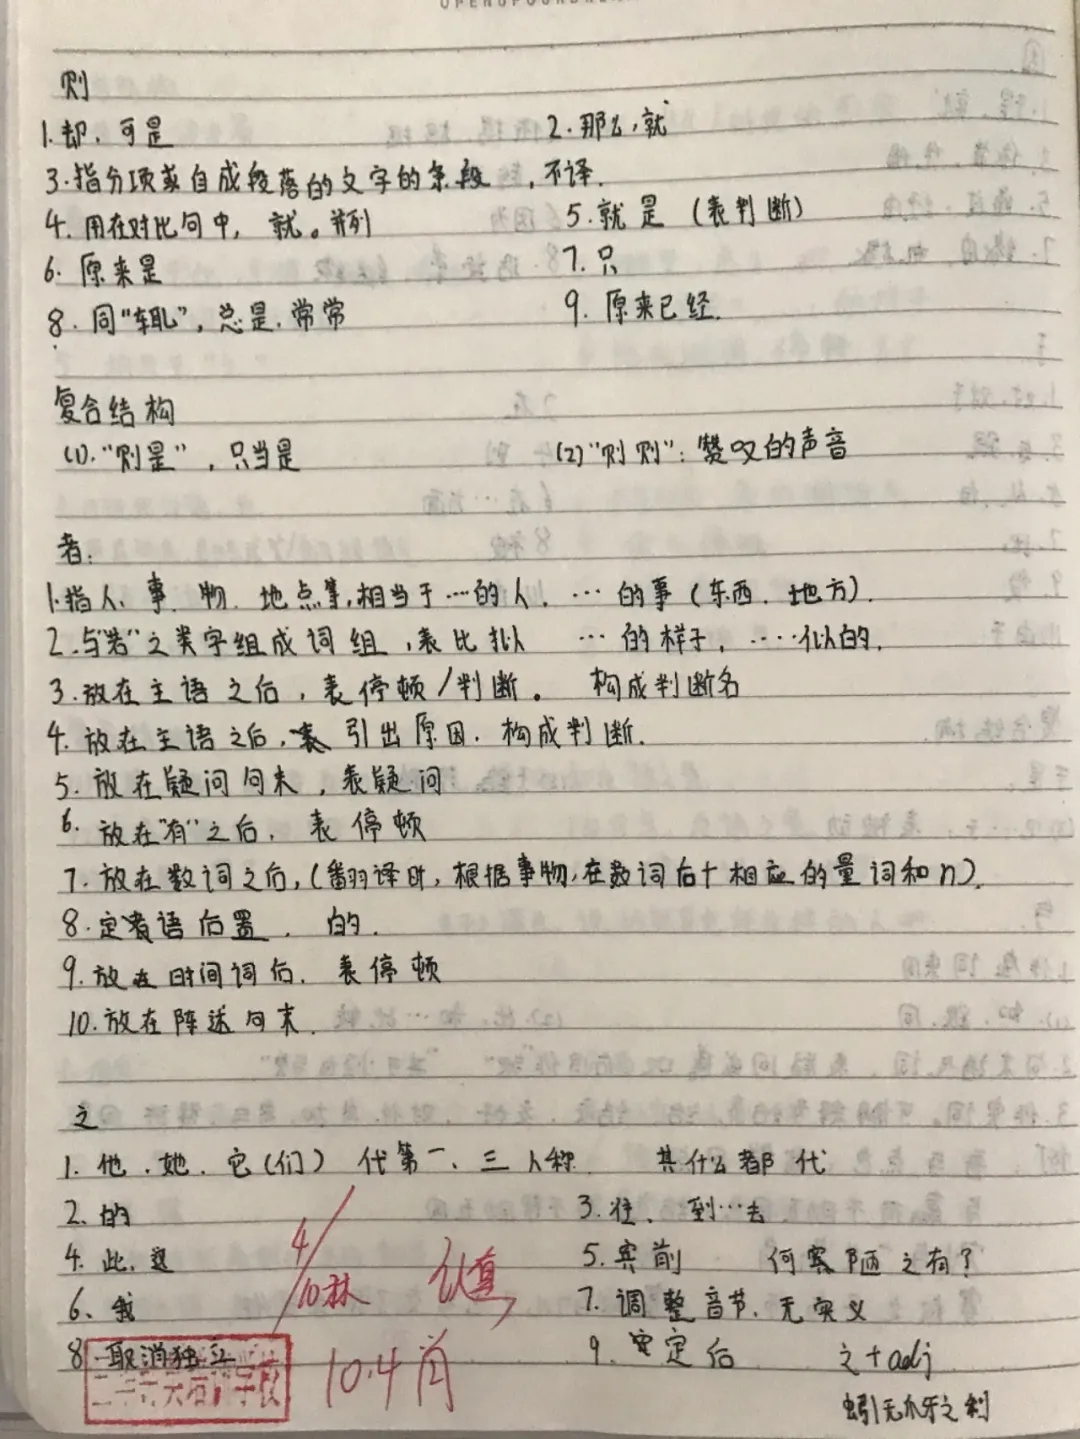 则
1.却.可是 2.那么,就
3.指分项或自成段落的文字的条段,不译.
4.用在对比句中, 就。并列 5.就是(表判断)
6.原来是 7.只
8.同"辄",总是.常常 9.原来已经.
复合结构
(1)."则是",只当是 (2)"则则":赞叹的声音
者:
1.指人、事.物.地点等,相当于…的人. …的事(东西.地方).
2.与"若"之类字组成词组,表比拟 …的样子.…似的.
3.放在主语之后,表停顿/判断。 构成判断名
4.放在主语之后,表引出原因.构成判断.
5.放在疑问句末,表疑问
6.放在"有"之后, 表停顿
7.放在数词之后,(翻译时,根据事物,在数词后+相应的量词和n).
8.定语后置. 的.
9.放在时间词后.表停顿
10.放在阵述句末.
之
1.他.她.它(们) 代第一、三人称 其什么都代
2.的 3.往、到…去
4.此.这 5.宾前 何寡陋之有?
6、我 7.调整音节.无实义
8.取消独立 9.定后 之+adj
蚓无爪牙之利
4/10 认真
10.4